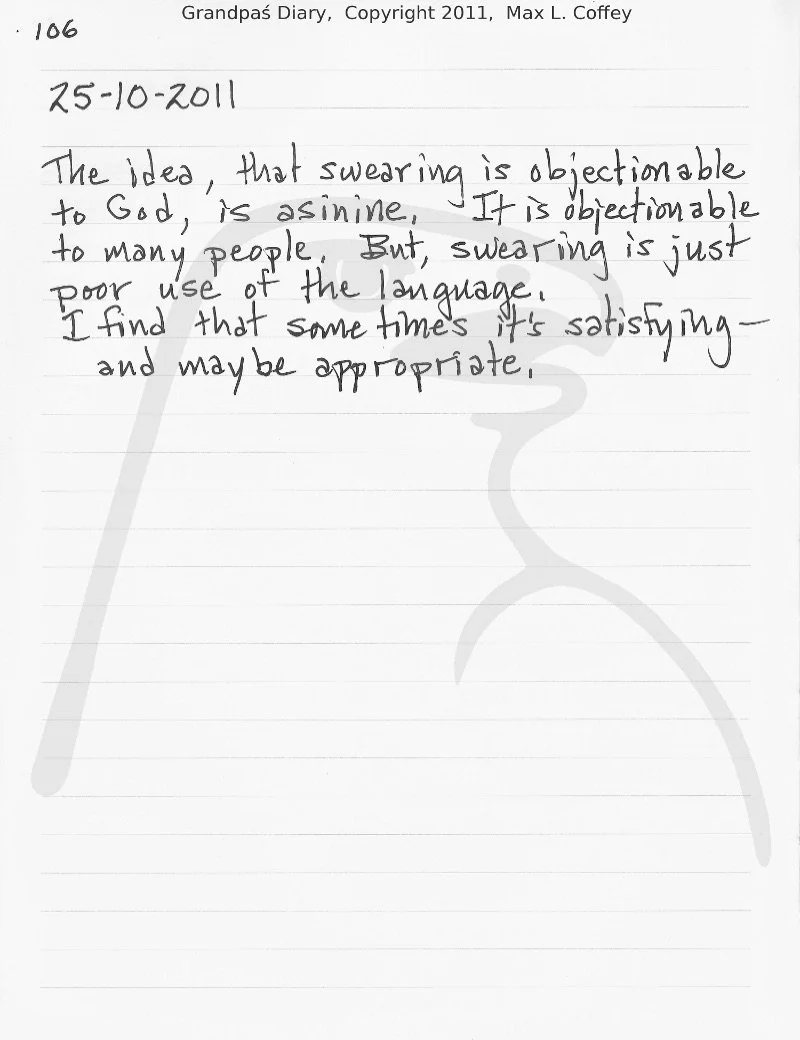 Grandpaś Diary, Copyright 2011, Max L. Coffey
106
25-10-2011
The idea, that swearing is objectionable
to God, is asinine. It is objectionable
to many people. But, swearing is just
poor use of the language.
I find that sometimes it's satisfying—
and maybe appropriate.